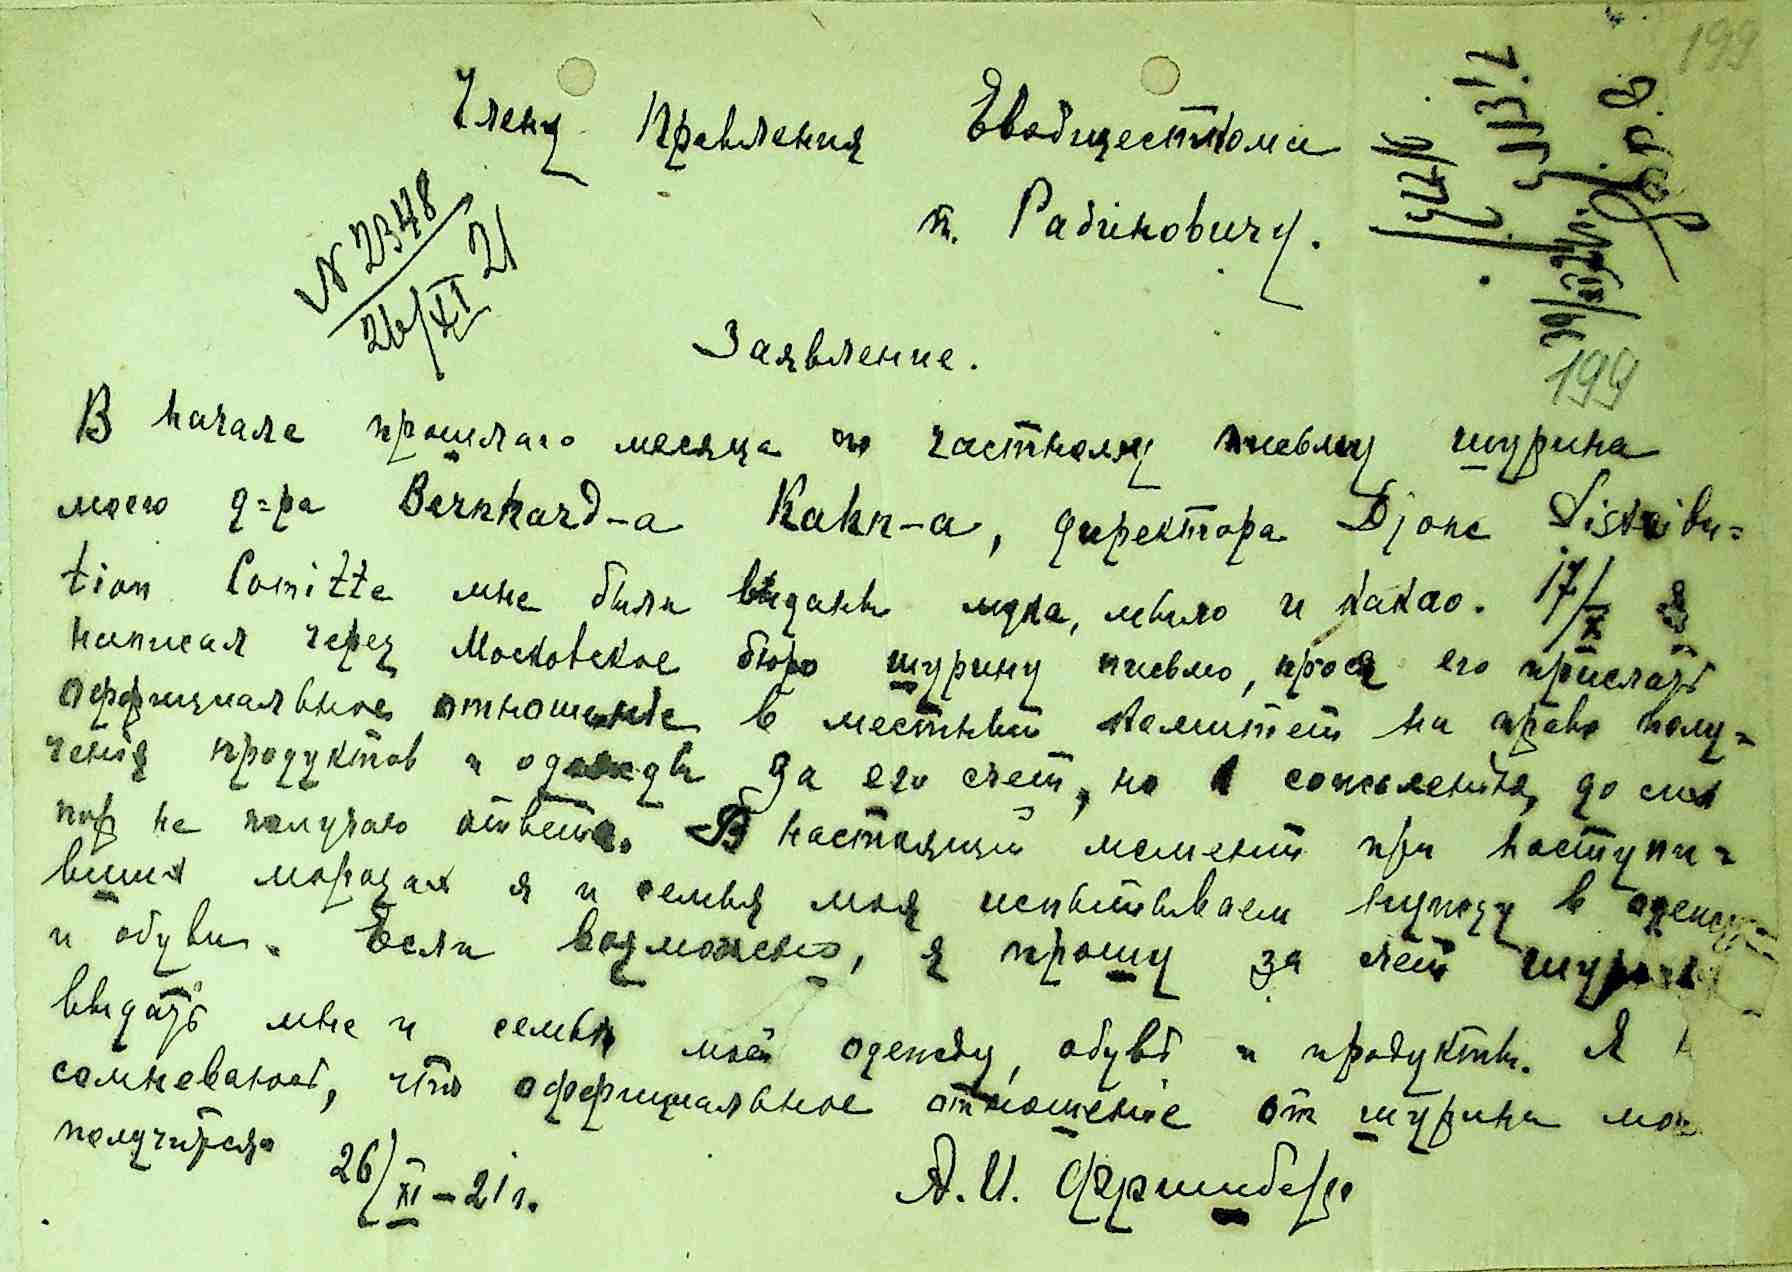 199
Члену Правления Евобщесткома
т. Рабиновичу.
N 2348
26/XI 21
199
Заявление.
В начале прошлаго месяца по частному письму шурина
моего д=ра Bernhard-a Kahn-a, директора Djone Distribu=
tion Comitte мне были выданы мука, мыло и какао. 17/X я
написал через Московское бюро шурину письмо, прося его прислать
оффициальное отношенiе в местный комитет на право полу=
ченiя продуктов и одежды за его счет, но к сожаленiю, до сих
пор не получаю ответа. В настоящий момент при наступи=
вших морозах я и семья моя испытываем нужду в одежде
и обуви. Если возможно, я прошу за счет шурина
выдать мне и семье моей одежду, обувь и продукты. Я н
сомневаюсь, что оффициальное отношенiе от шурина мое
получится.
26/XI - 21 г.
А. И.